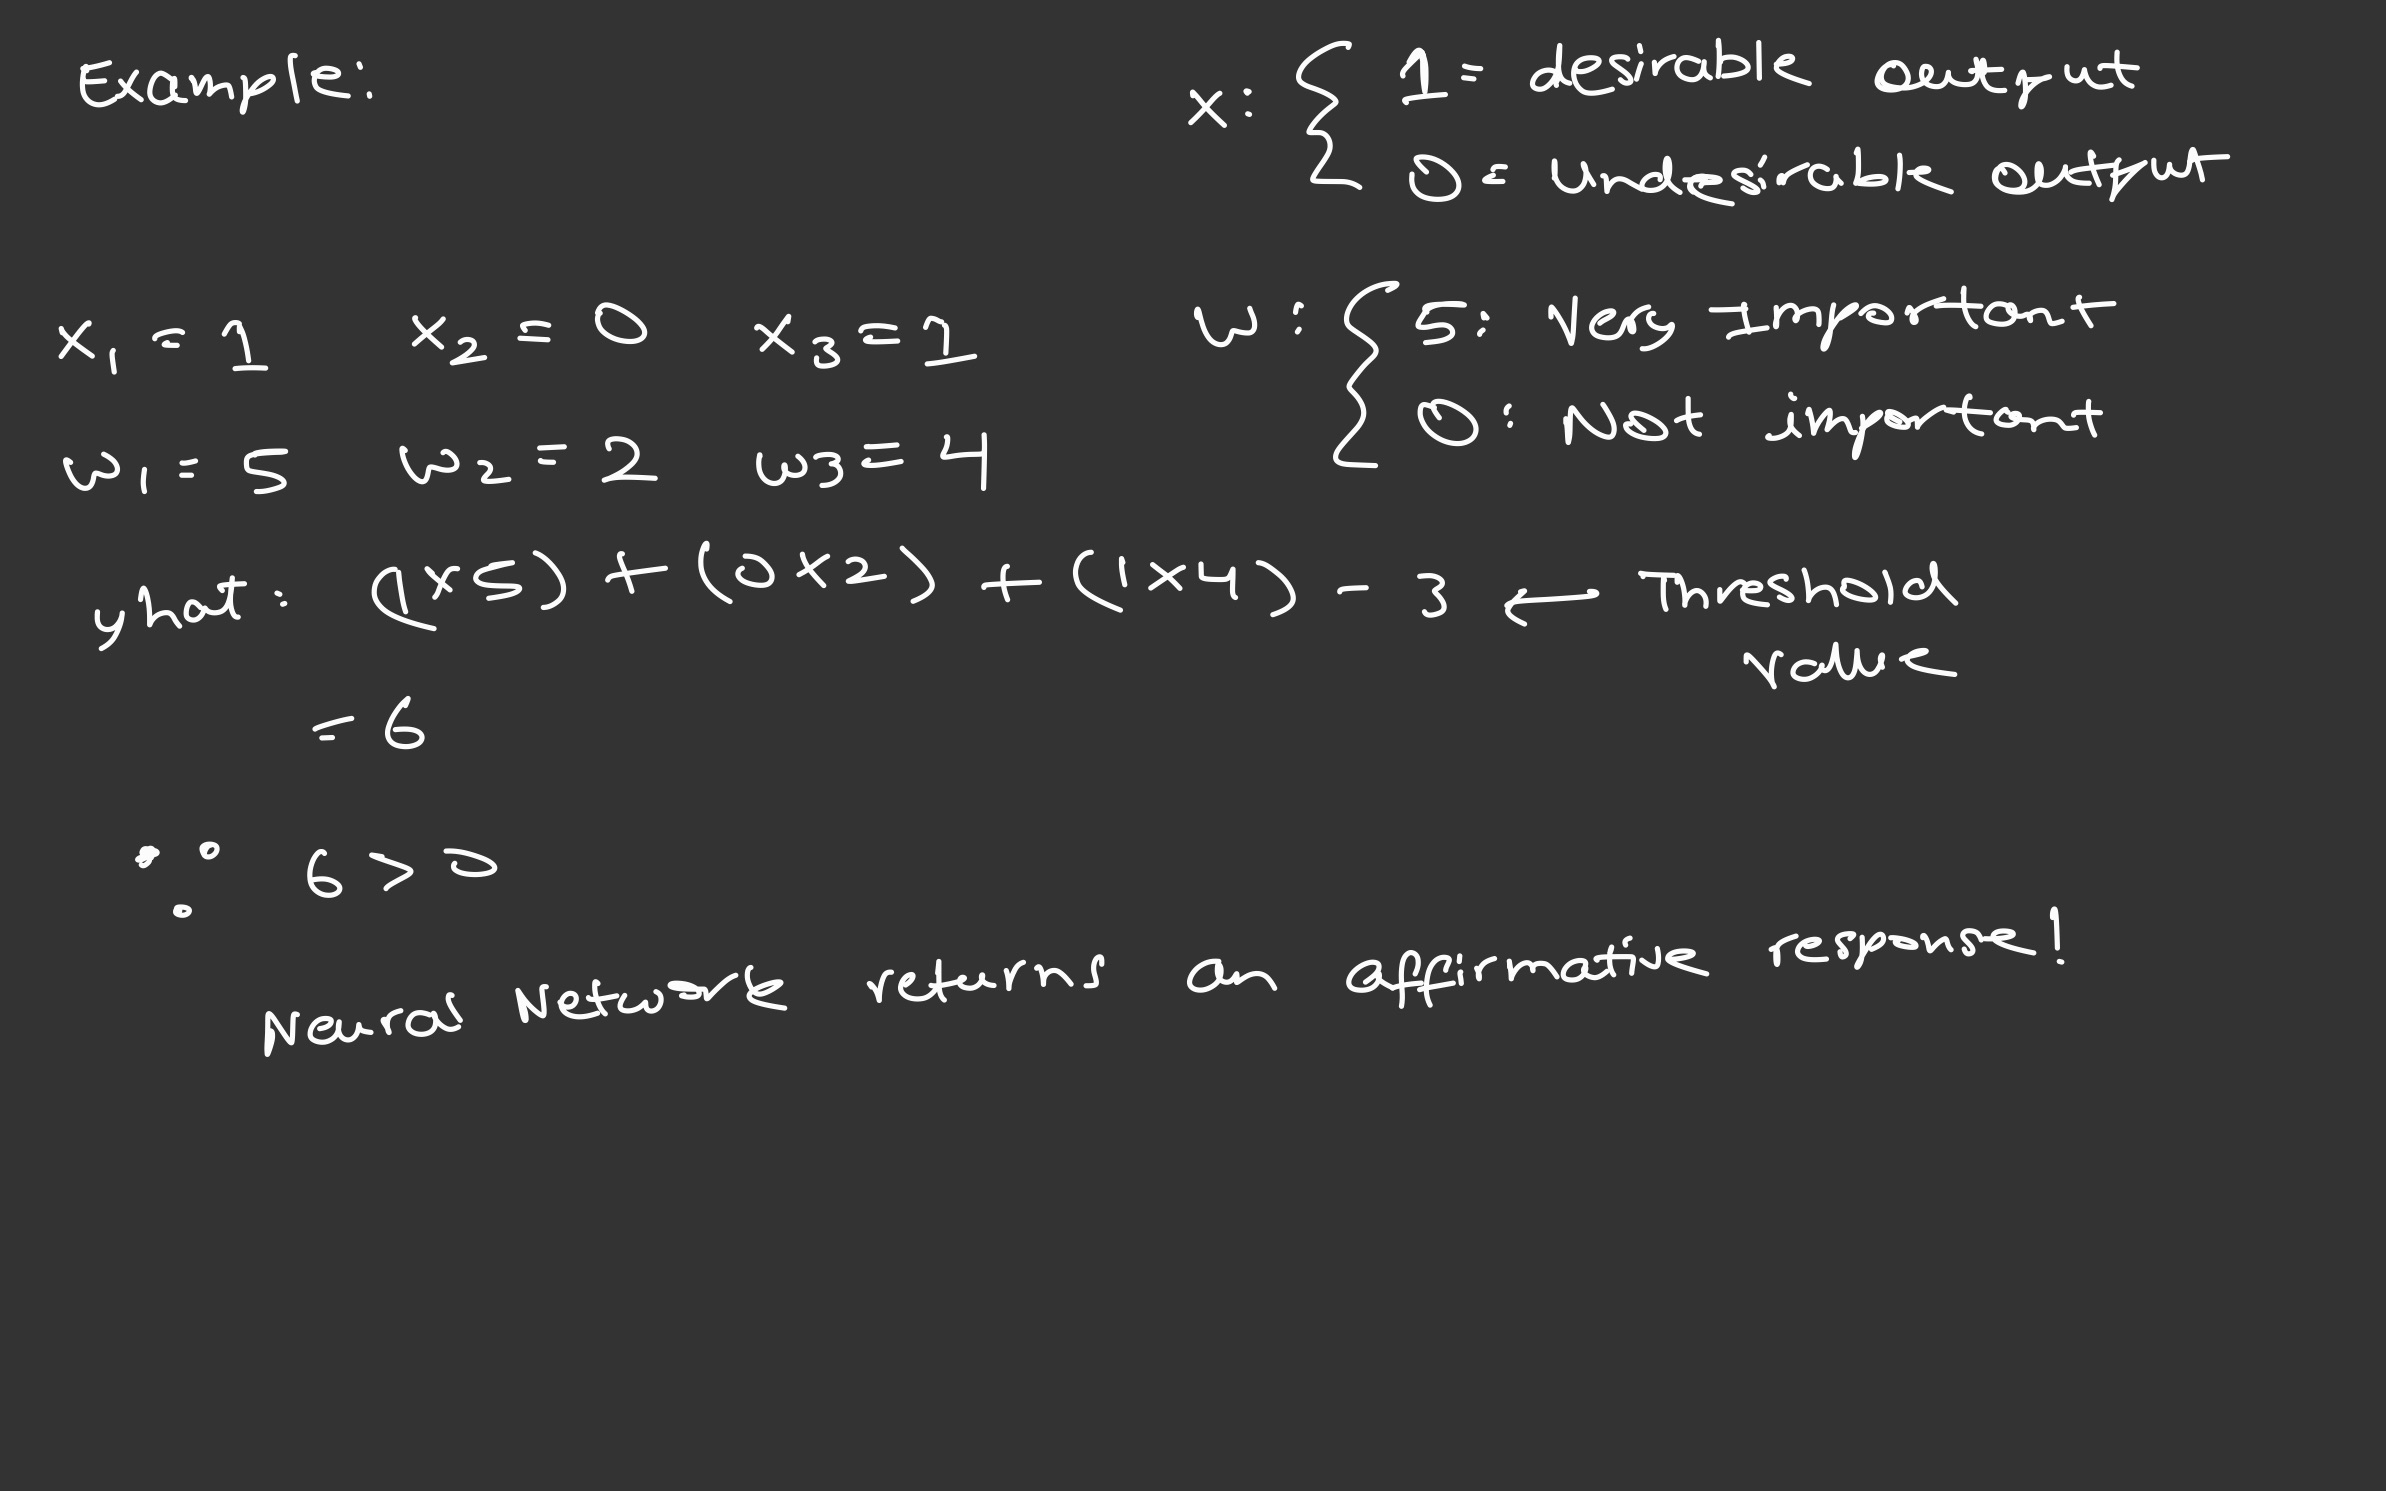 Example:
x: { 1 = desirable output
0 = undesirable output
x₁ = 1 x₂ = 0 x₃ = 1
w: { 5: Very Important
0: Not important
w₁ = 5 w₂ = 2 w₃ = 4
yhat: (1×5) + (0×2) + (1×4) - 3 ← Threshold
value
= 6
∵ 6 > 0
Neural Network returns an affirmative response!